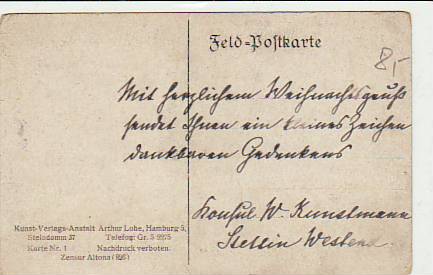 Feld-Postkarte
8,-
Mit herzlichem Weihnachtsgruß
sendet Ihnen ein kleines Zeichen
dankbaren Gedenkens
Konsul W. Kunstmann
Stettin Westend.
Kunst-Verlags-Anstalt Arthur Lohe, Hamburg 5,
Steindamm 37 Telefog: Gr. 5 9975
Karte Nr. 1 Nachdruck verboten.
Zensur Altona (826)